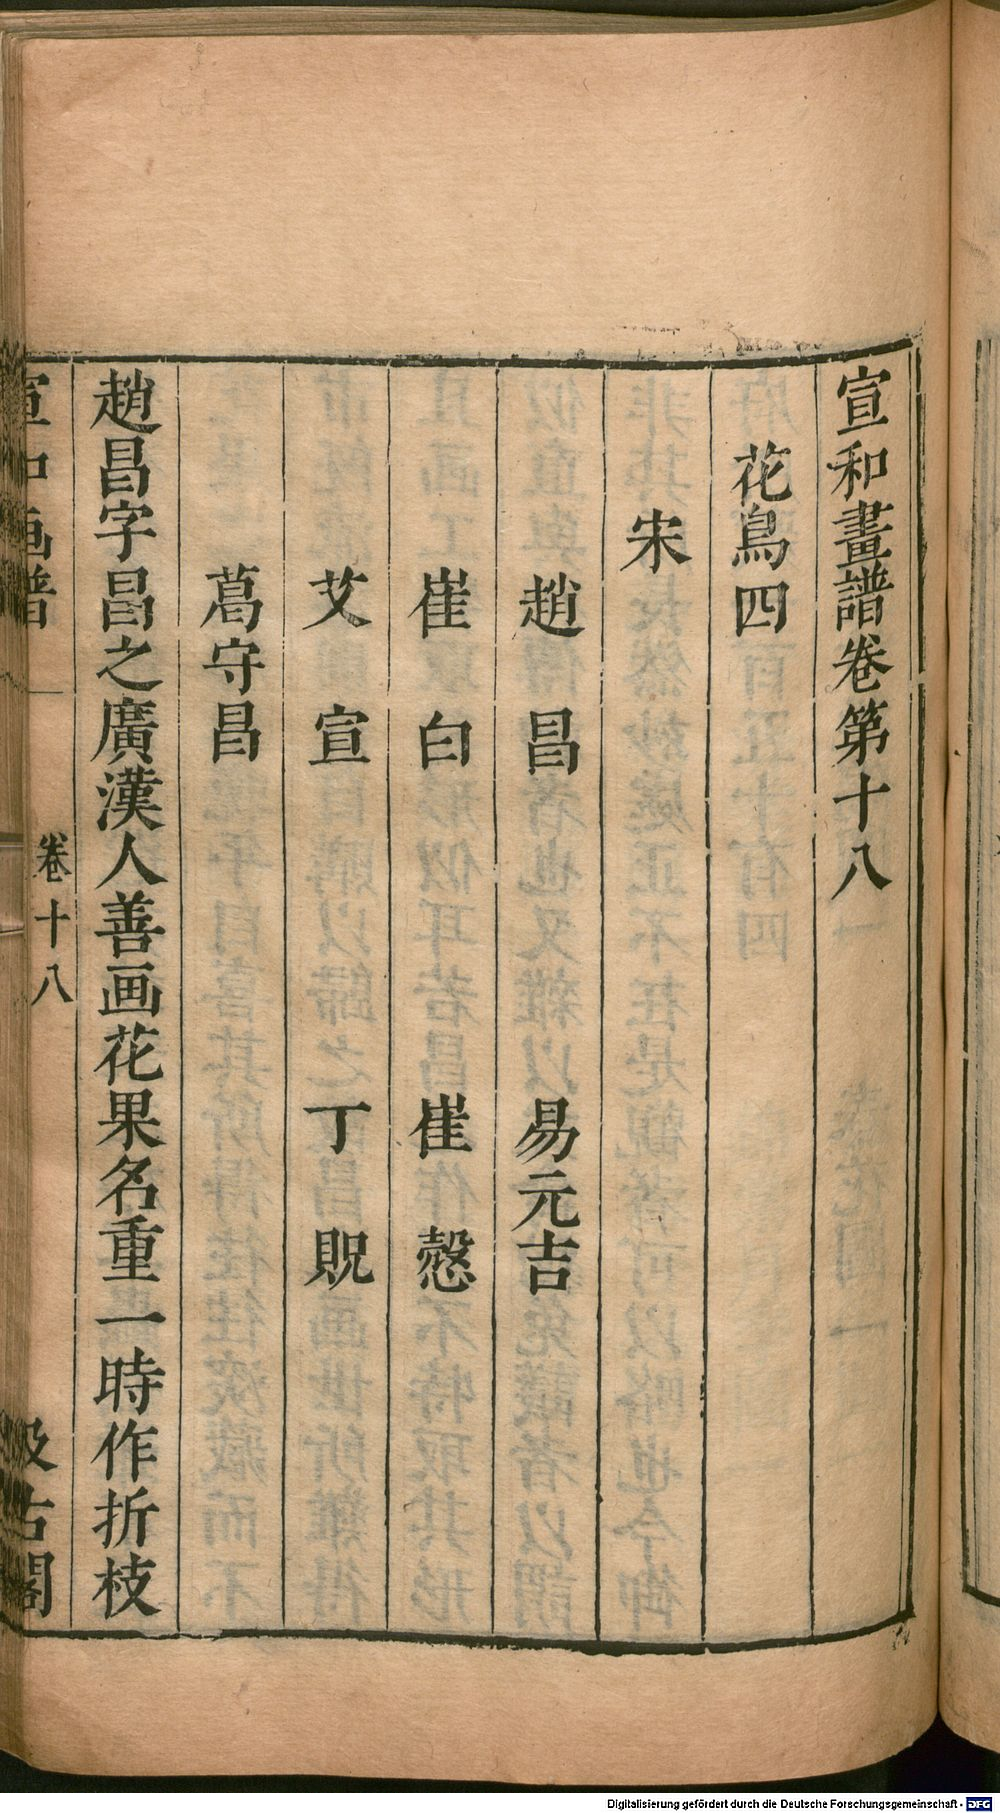 宣和畫譜卷第十八
花鳥四
宋
趙昌 易元吉
崔白 崔慤
艾宣 丁貺
葛守昌
趙昌字昌之廣漢人善画花果名重一時作折枝
宣和画譜 卷十八 汲古閣
Digitalisierung gefördert durch die Deutsche Forschungsgemeinschaft - DFG